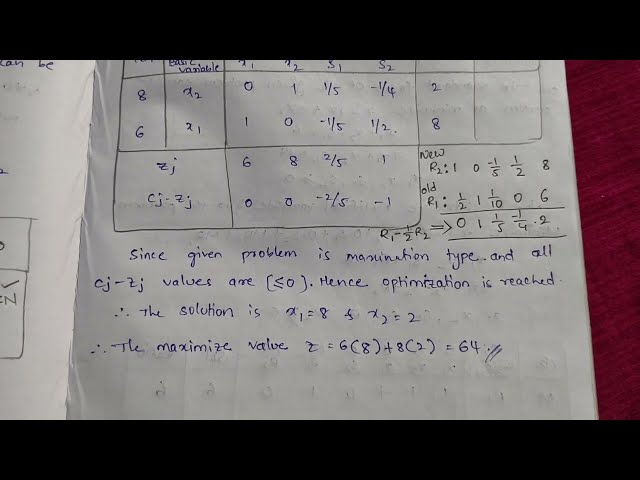 can be
Basic variable x₁ x₂ S₁ S₂
8 x₂ 0 1 1/5 -1/4 2
6 x₁ 1 0 -1/5 1/2 8
Zj 6 8 2/5 1
Cj-Zj 0 0 -2/5 -1
New
R₂: 1 0 -1/5 1/2 8
old
R₁: 1/2 1 1/10 0 6
R₁-1/2R₂ => 0 1 1/5 -1/4 2
Since given problem is maximation type and all
Cj-Zj values are [≤0]. Hence optimization is reached.
∴ The solution is x₁=8 & x₂=2
∴ The maximize value Z = 6(8)+8(2) = 64.